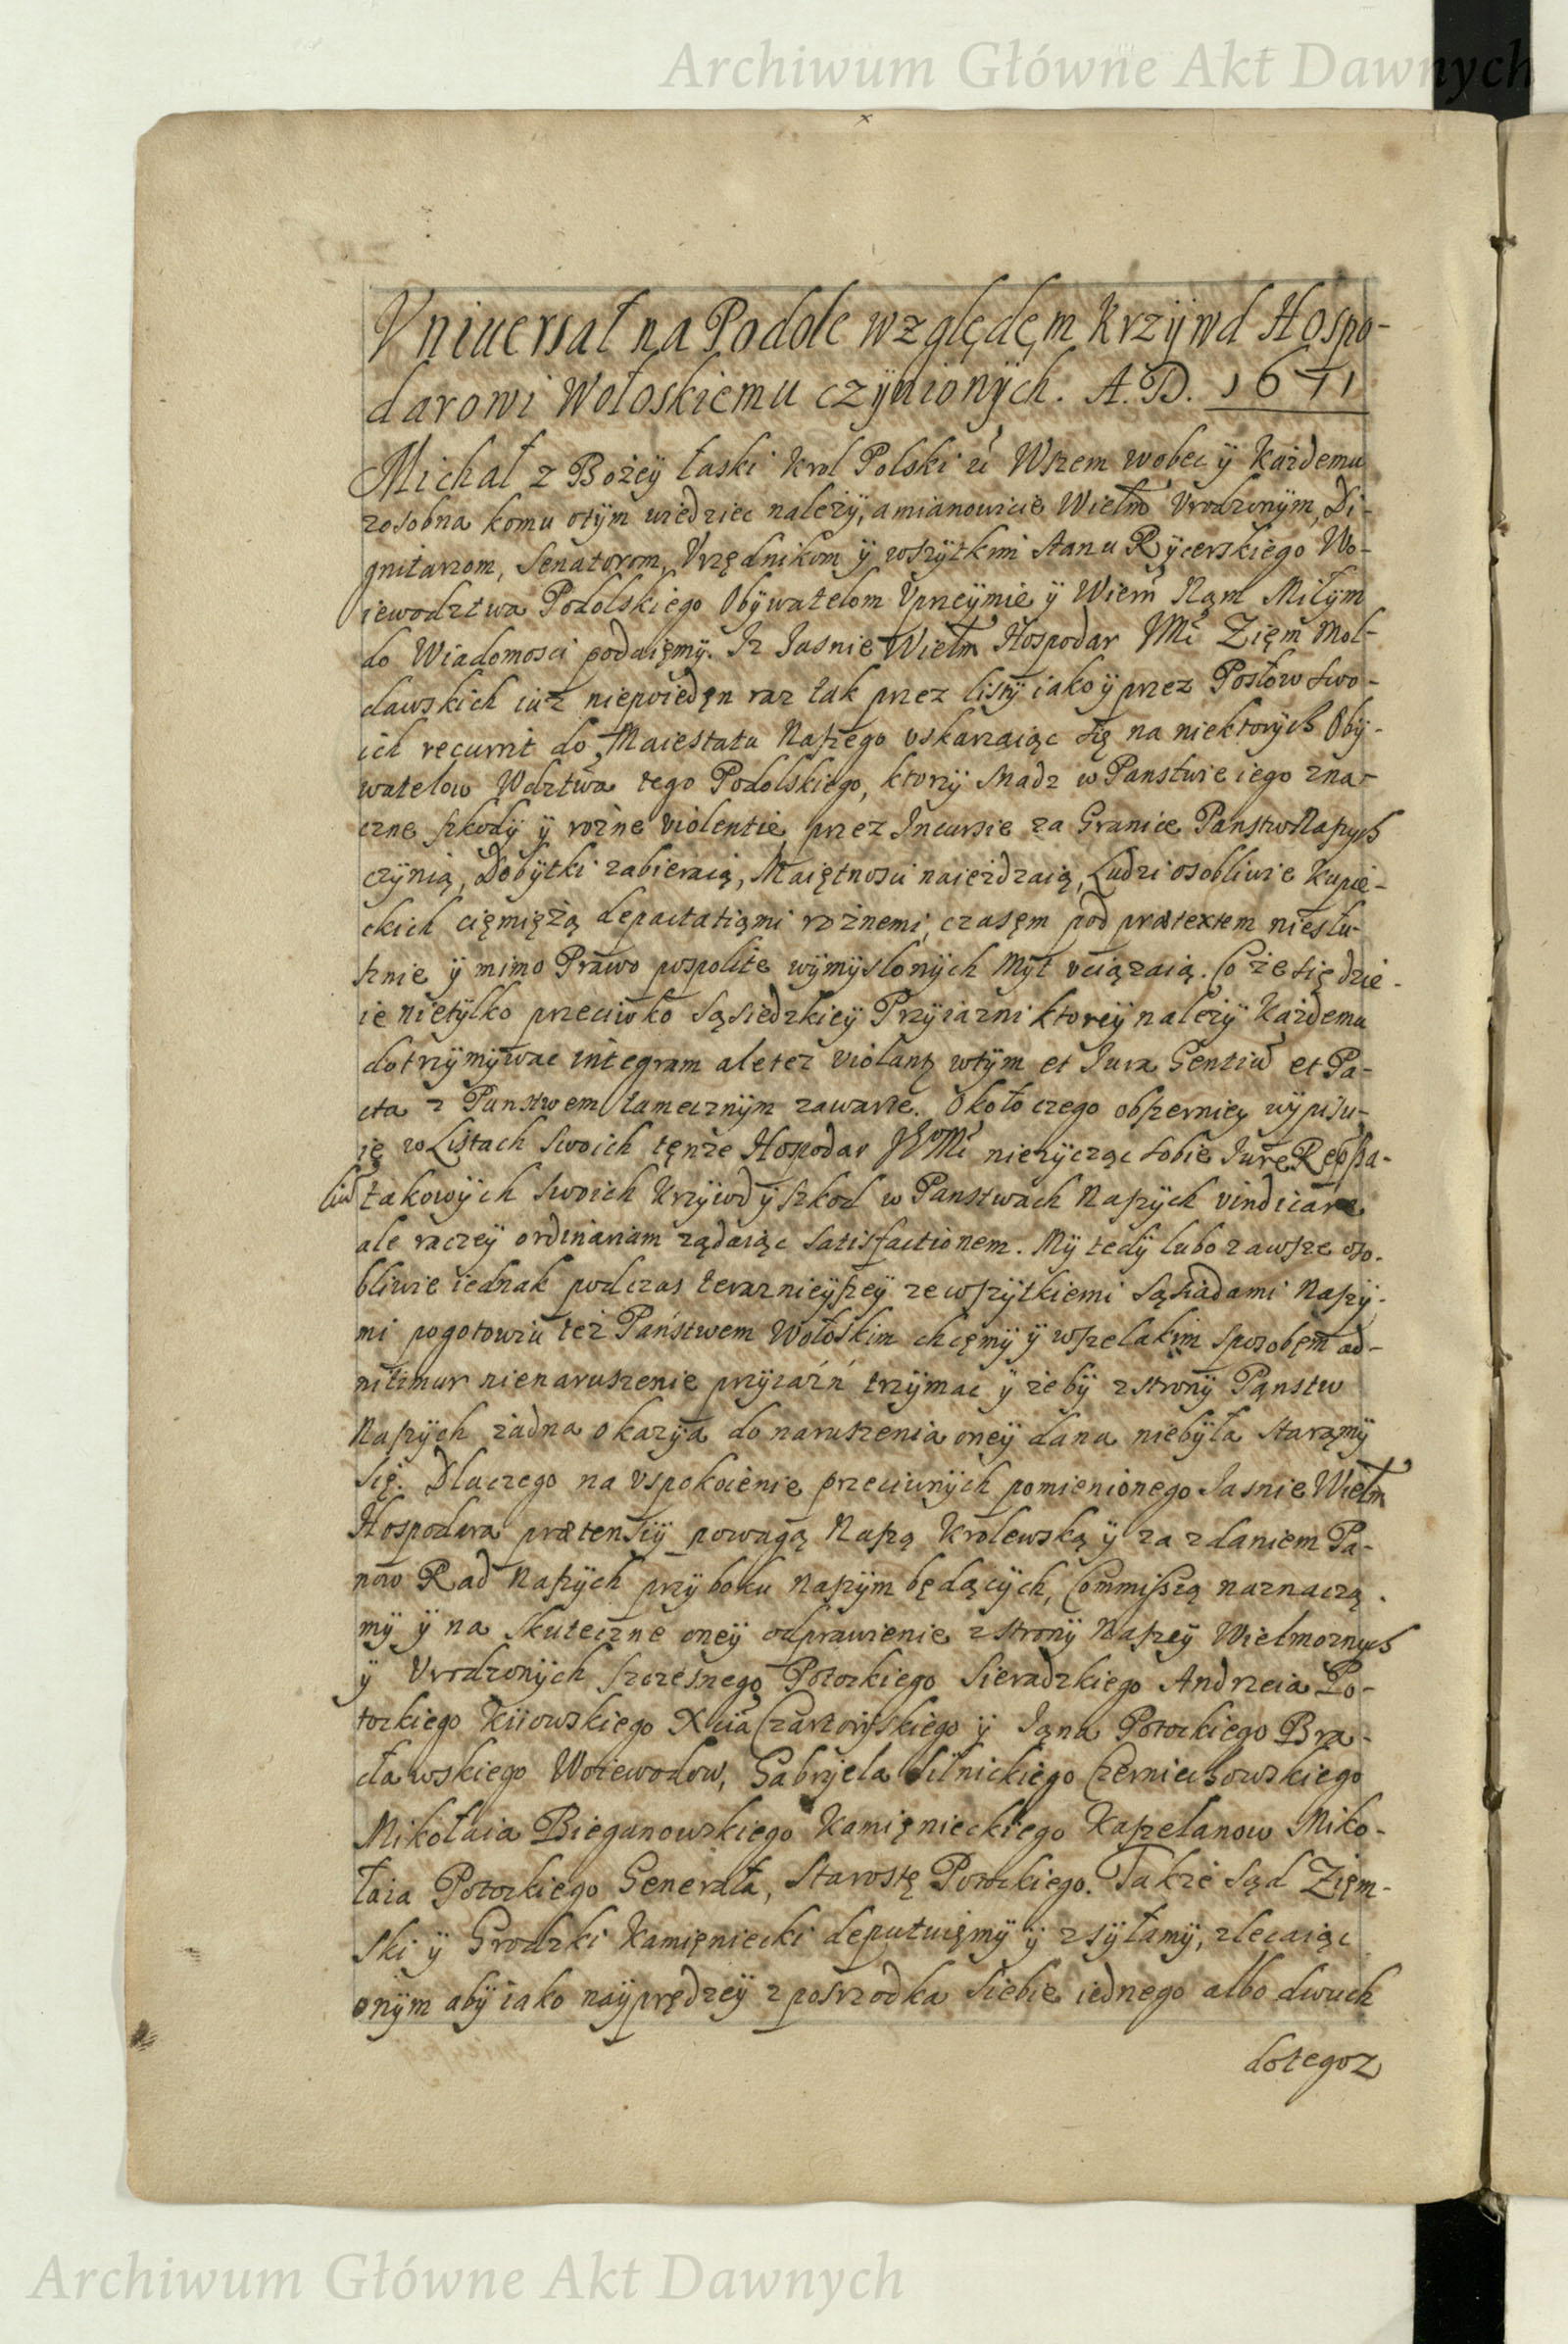 Archiwum Główne Akt Dawnych
Vniuersał na Podole względęm krzÿwd Hospo-
darowi Wołoskiemu czÿnionÿch. A. D. 1671
Michał z Bożeÿ łaski Krol Polski &c Wszem wobec ÿ Każdemu
zosobna komu otÿm wiedziec należÿ, amianowicie Wielm Vrodzonÿm, Di-
gnitarzom, Senatorom, Vrzędnikom ÿ wszÿtkim stanu Rÿcerskiego Wo-
iewodztwa Podolskiego Obÿwatelom Vprzeÿmie ÿ Wiern Nąm Miłÿm
do Wiadomosci podaięmÿ. Iz Iasnie Wielm Hospodar JMc Zięm Mol-
dawskich iuz niepoiedęn raz tak przez listÿ iako ÿ przez Posłow swo-
ich recurrit do Maiestatu Naszego vskarzaiąc się na niektorÿch Obÿ-
watelow Wdztwa tego Podolskiego, ktorzÿ snadz w Panstwie iego zna-
czne szkodÿ ÿ rożne violentie, przez Incursie za Granice Panstw Naszÿch
czÿnią, Dobÿtki zabieraią, Maiętnosci naieżdzaią, Ludzi osobliwie kupie-
ckich ciemiężą depactatiąmi rożnemi, czasęm pod prætextem niesłu-
sznie ÿ mimo Prawo pospolite wÿmÿslonÿch Mÿt vciązaią. Co że się dzie-
ie nietÿlko przeciwko Sąsiedzkieÿ Przÿiazni ktoreÿ należÿ każdemu
dotrzÿmÿwac integram ale tez violantz wtÿm et Iura Gentiu et Pa-
cta z Panstwem tamecznÿm zawarte. Około czego obszerniey wÿpisu-
ię w Listach swoich tęnże Hospodar JeMc nieżÿcząc sobie Iure Repssa-
liu takowÿch swoich krzÿwd ÿ szkod w Panstwach Naszÿch vindicare
ale raczeÿ ordinariam ządaiąc satisfactionem. Mÿ tedÿ lubo zawsze oso-
bliwie iednak podczas teraznieÿszeÿ ze wszÿtkiemi Sąsiadami Naszÿ-
mi pogotowiu też Państwem Wołoskim chcęmÿ ÿ wszelakim sposobęm ad-
nitimur nienaruszenie przÿiaźń trzÿmac ÿ żebÿ z stronÿ Pąnstw
Naszÿch żadna okazÿa do naruszenia oneÿ dana niebÿła starąmÿ
się. Dlaczego na vspokoienie przeciwnÿch pomienionego Iasnie Wielm
Hospodara prætensiÿ powagą Naszą Krolewską ÿ za zdaniem Pa-
now Rad Naszÿch przÿ boku Naszÿm będącÿch, Commissią naznaczą-
mÿ ÿ na skuteczne oneÿ odprawienie z stronÿ Naszeÿ Wielmoznÿch
ÿ Vrodzonÿch Szczesnego Potockiego Sieradzkiego Andrzeia Po-
tockiego Kiiowskiego Xcia Czartorÿskiego ÿ Iąna Potockiego Bra-
cławskiego Woiewodow, Gabrÿela Silnickiego Czerniechowskiego
Mikołaia Bieganowskiego Kamięnieckiego Kasztelanow Miko-
łaia Potockiego Generała, Starostę Potockiego. Takze Sąd Zięm-
ski ÿ Grodzki Kamięniecki deputuięmÿ ÿ zsÿłamÿ, zlecaiąc
onÿm abÿ iako naÿprędzeÿ z posrzodka siebie iednego albo dwuch
dotegoz
Archiwum Główne Akt Dawnych